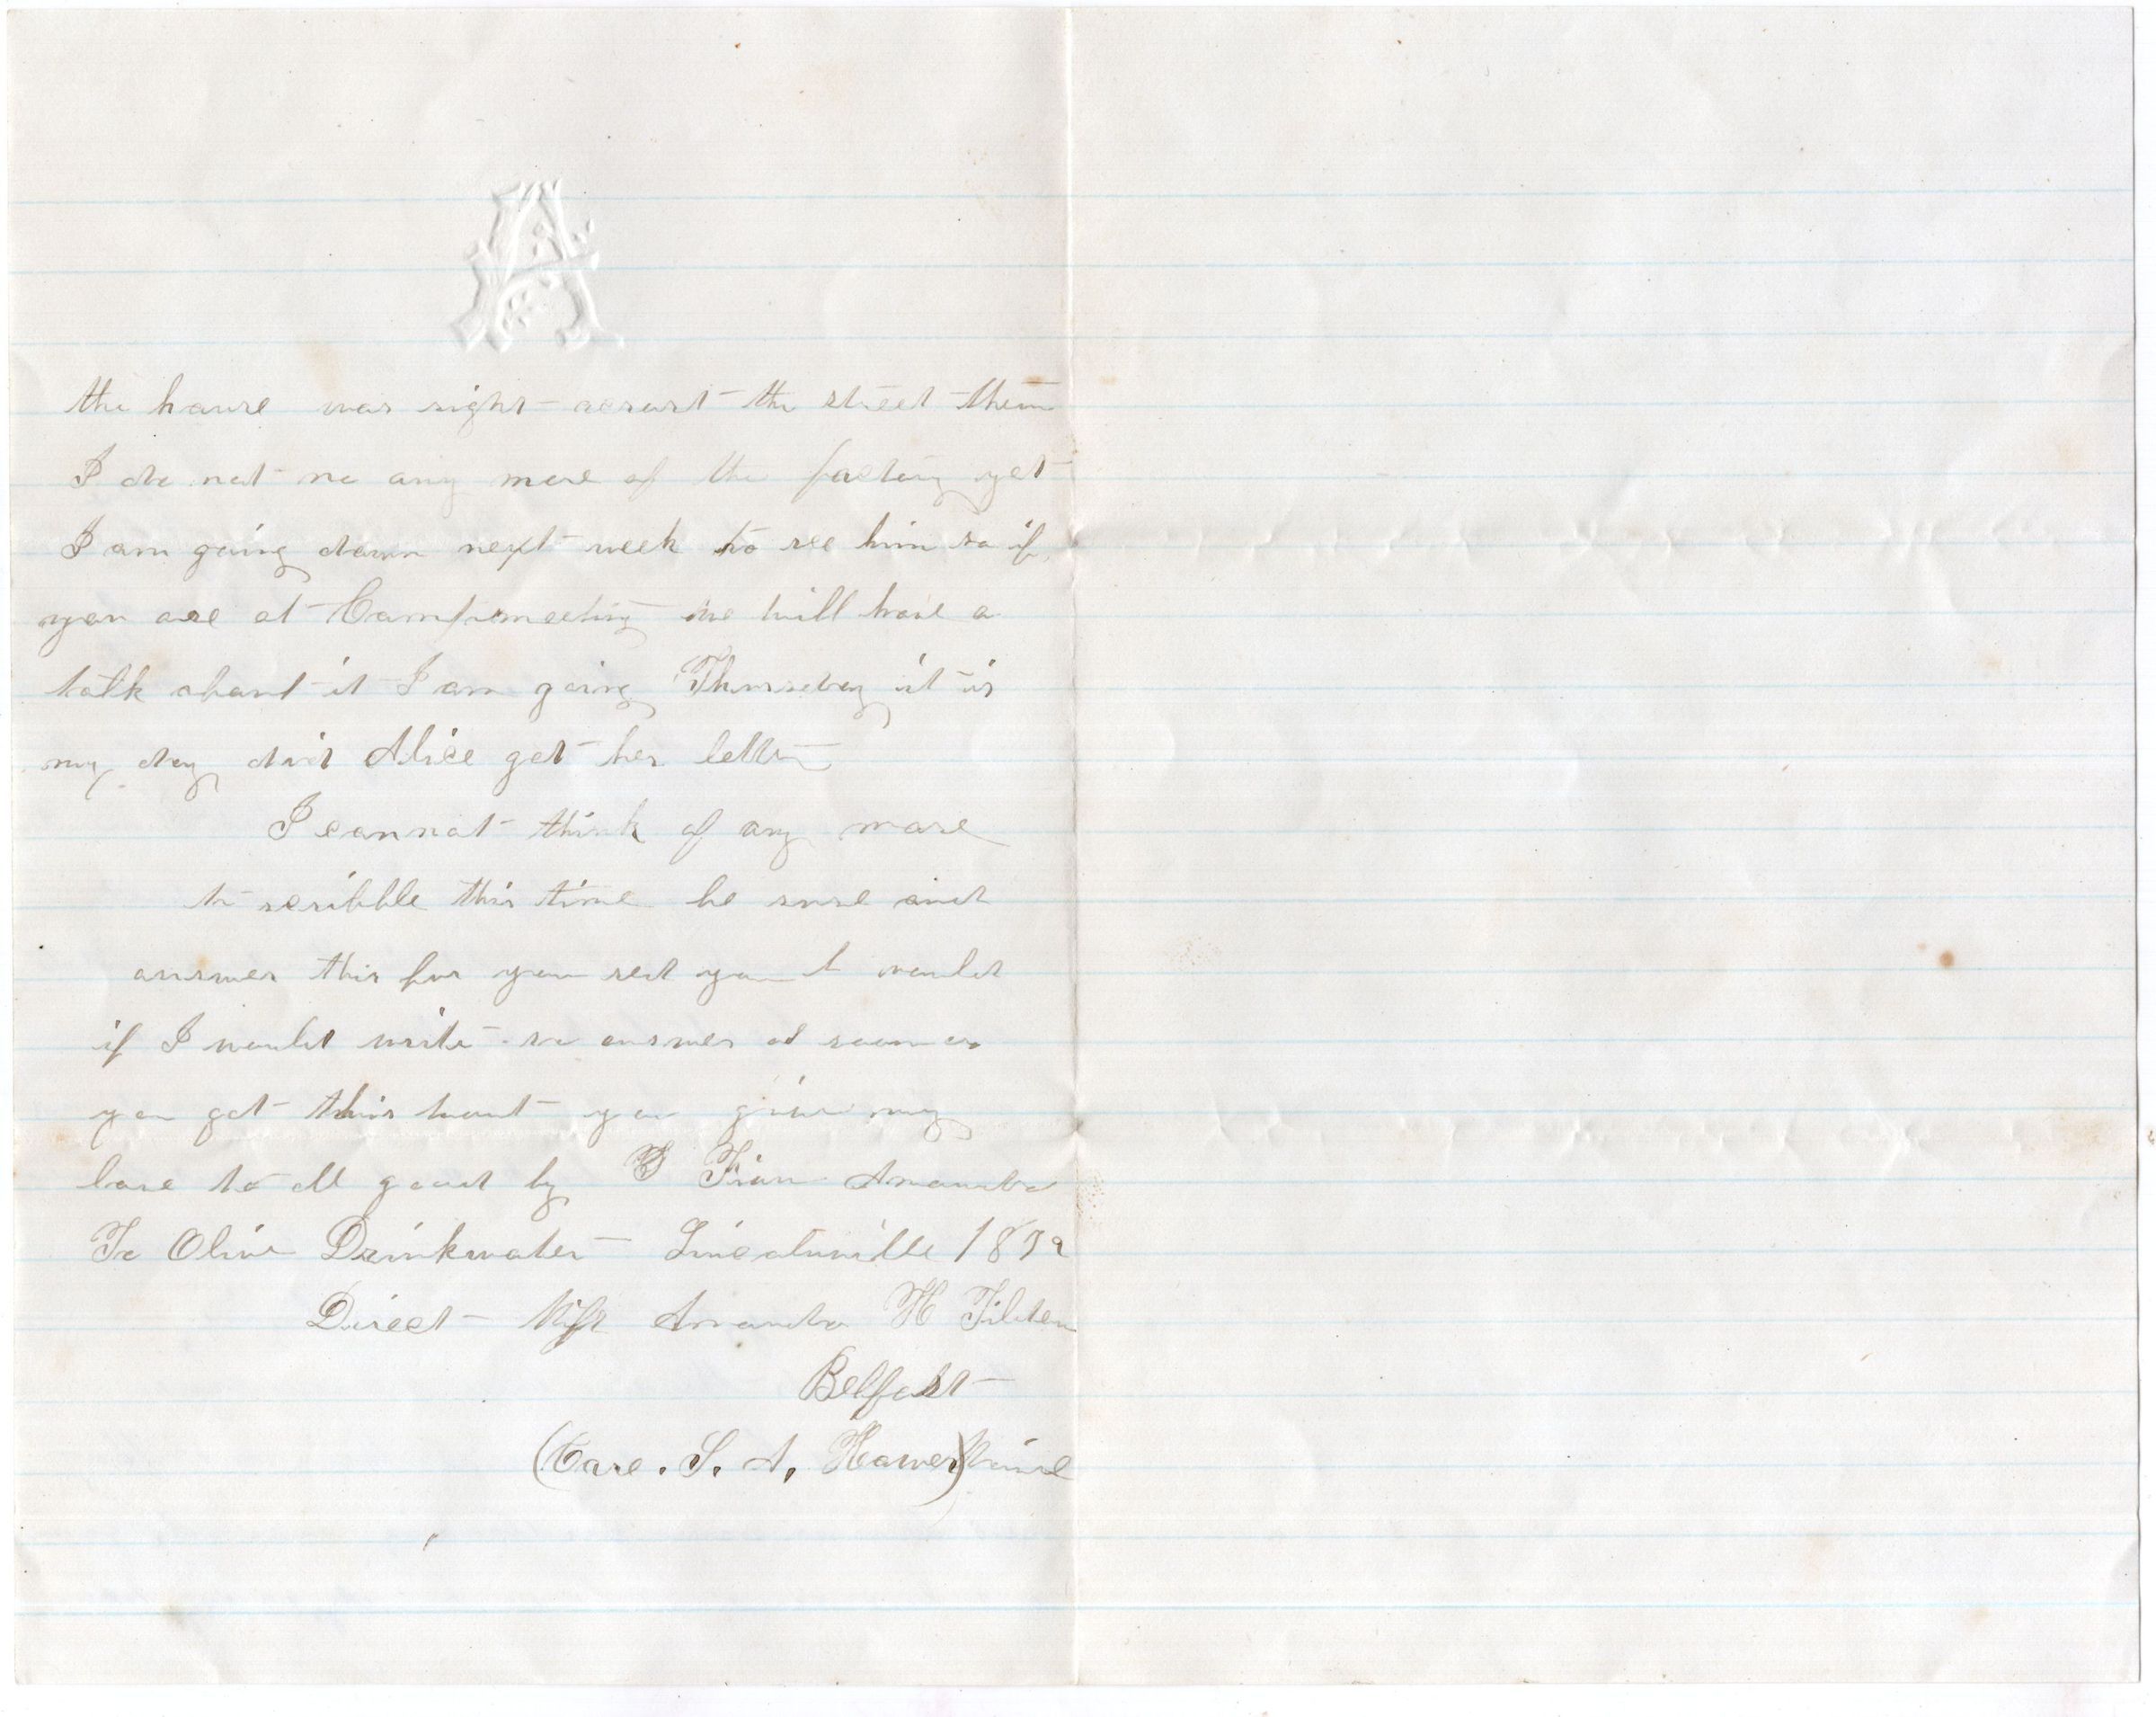 A
the house was right acrost the street them
I do not no any more of the factory yet
I am going down next week to see him so if
you are at Campmeeting we will have a
talk about it I am going Thursday it is
my day did Alice get her letter
I cannot think of any more
to scribble this time be sure and
answer this for you sed you would
if I would write so answer as soon as
you get this wont you give my
love to all good by From Amanda
To Olive Drinkwater Lincolnville 1879
Direct Miss Amanda H Tilden
Belfast
(Care. S. A. Howes) Maine